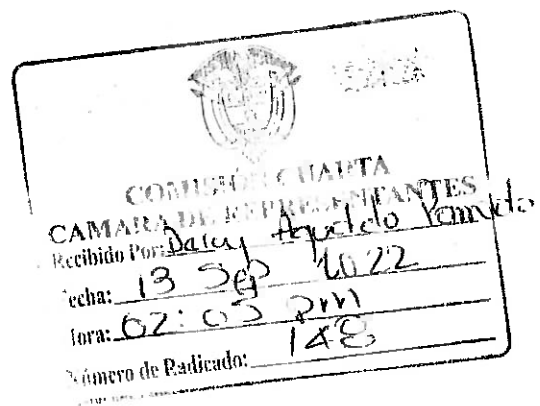 COMISIÓN CUARTA
CAMARA DE REPRESENTANTES
Recibido Por: Daicy
echa: 13 Sep 2022
ora: 02:03 pm
Número de Radicado: 148